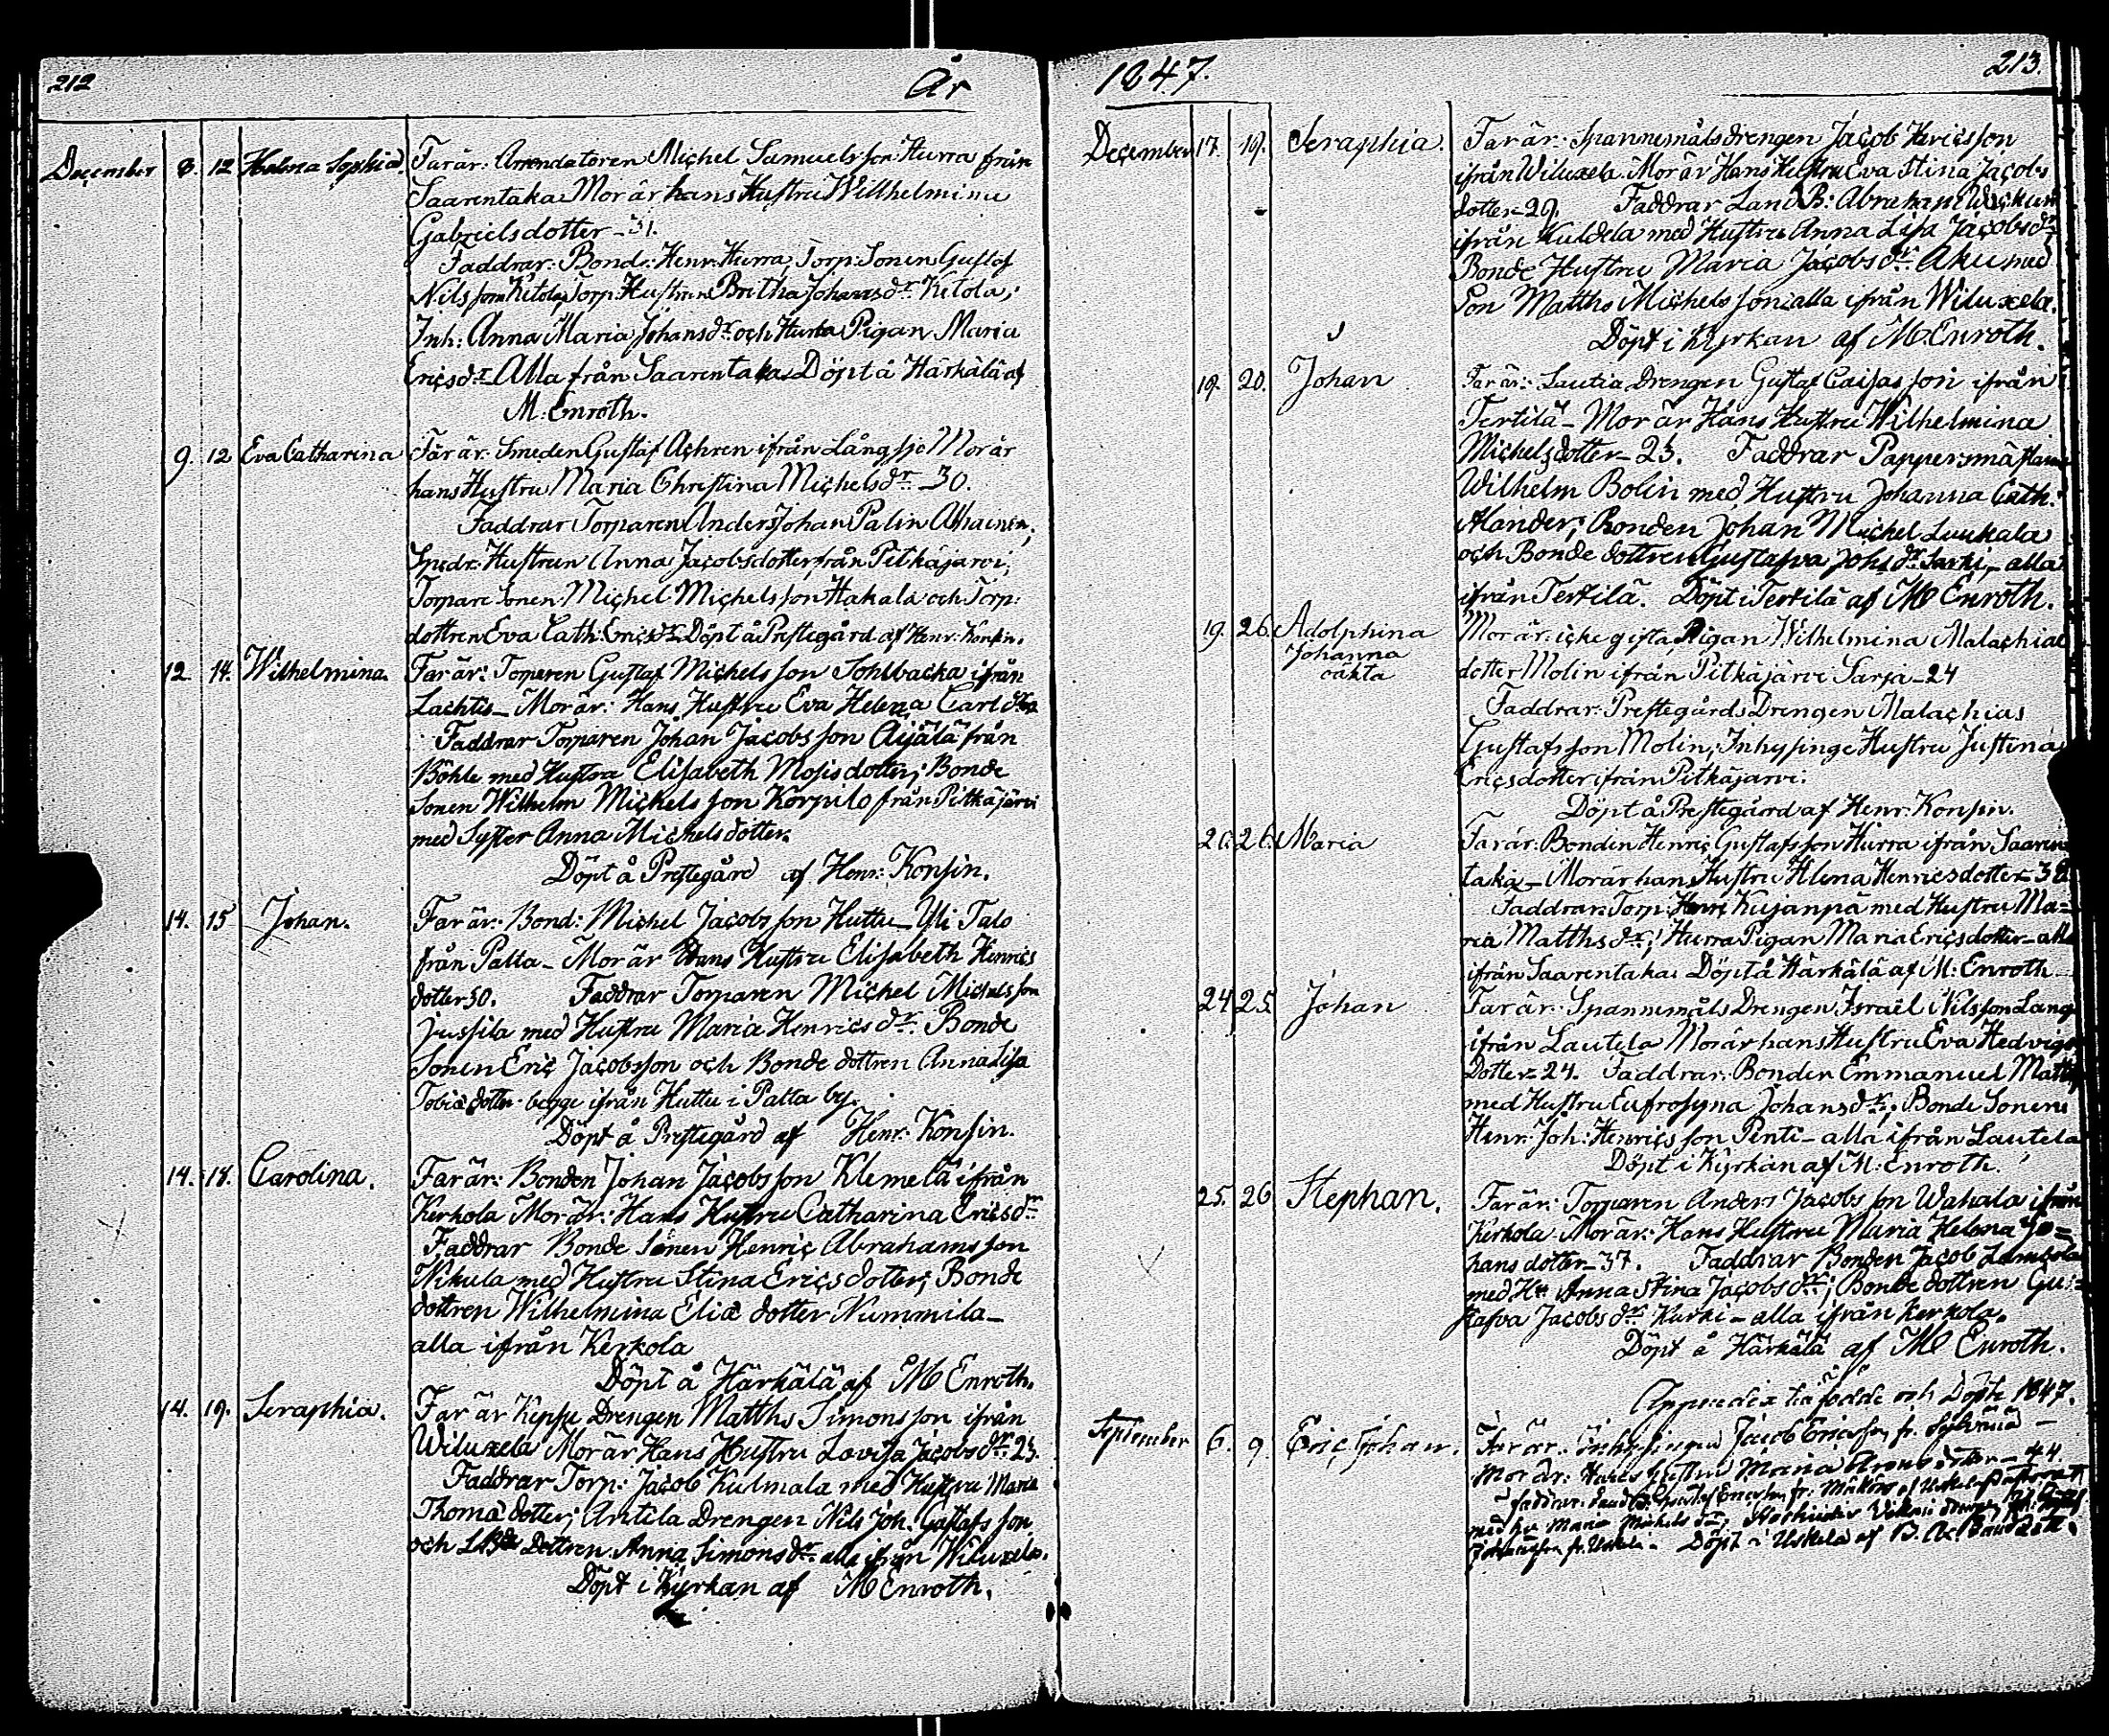 212
År
December 8. 12 Helena Sophia. Far är: Arrendatoren Michel Samuelsson Hurra från
Saarentaka Mor är hans Hustru Willhelmina
Gabrielsdotter - 31.
Faddrar: Bond: Henr: Hurra, Torp: Sonen Gustaf
Nilsson Ketola, Torp. Hustrun Britha Johansdr Ketola;
Inh: Anna Maria Johansdr och Hurra Pigan Maria
Ericsdr Alla från Saarentaka Döpt å Härkälä af
M: Enroth.
9. 12 Eva Catharina Far är Smeden Gustaf Achren ifrån Långsjo Mor är
hans Hustru Maria Christina Michelsdr - 30.
Faddrar Torparen Anders Johan Palin
Hustrun Anna Jacobsdotter från Pitkäjarvi;
Torpare Sonen Michel Michelsson Hakala och Torp:
dottren Eva Cath: Ericsdr Döpt å Prestegård af Henr: Konsin.
12. 14. Wilhelmina. Far är: Torparen Gustaf Michelsson Sohlbacka ifrån
Lachtis - Mor är: Hans Hustru Eva Helena Carlsdr
Faddrar Torparen Johan Jacobsson Äijälä från
Böhle med Hustru Elisabeth Mosisdotter; Bonde
Sonen Wilhelm Michelsson Korpilo från Pitkäjärvi
med Syster Anna Michelsdotter.
Döpt å Prestegård af Henr: Konsin.
14. 15 Johan. Far är: Bond: Michel Jacobsson Huttu - Yli Talo
från Palta - Mor är Hans Hustru Elisabeth Henrics
dotter 30. Faddrar Torparen Michel Michelsson
Jussila med Hustru Maria Henricsdr. Bonde
Sonen Eric Jacobsson och Bonde dottren Anna Lisa
Tobiædotter begge ifrån Huttu i Palta by.
Döpt å Prestegård af Henr: Konsin.
14. 18. Carolina. Far är: Bonden Johan Jacobsson Klemelä ifrån
Kerkola Mor är: Hans Hustru Catharina Ericsdr
Faddrar Bonde Sonen Henric Abrahamsson
Nikula med Hustru Stina Ericsdotter; Bonde
dottren Wilhelmina Eliæ dotter Nummila -
alla ifrån Kerkola
Döpt å Härkälä af M Enroth.
14. 19. Seraphia. Far är Keppe Drengen Matths Simonsson ifrån
Wiluxela Mor är Hans Hustru Lovisa Jacobsdr 23.
Faddrar Torp: Jacob Kulmala med Hustru Maria
Thomædotter; Antila Drengen Nils Joh: Gustafsson
och LBde Dottren Anna Simonsdr alla ifrån Wiluxela.
Döpt i Kyrkan af M Enroth.
1847.
213.
December 17. 19. Seraphia. Far är: Spannemålsdrengen Jacob Hericsson
ifrån Wiluxela. Mor är Hans Hustru Eva Stina Jacobs
dotter - 29. Faddrar Land B: Abraham
ifrån Kuldela med Hustru Anna Lisa Jacobsdr
Bonde Hustru Maria Jacobsdr Aku med
Son Matths Michelsson alla ifrån Wiluxela.
Döpt i Kyrkan af M. Enroth.
19. 20. Johan Far är: Lautia Drengen Gustaf Caisasson ifrån
Tertilä - Mor är Hans Hustru Wilhelmina
Michelsdotter - 23. Faddrar Pappersmästaren
Wilhelm Bolin med Hustru Johanna Cath:
Alander; Bonden Johan Michel Luukala
och Bonde dottren Gustafva Johsdr Sarki, - alla
ifrån Tertilä. Döpt i Tertilä af M Enroth.
19. 26. Adolphina Mor är: icke gifta Pigan Wilhelmina Malachiæ
Johanna
oäkta dotter Molin ifrån Pitkäjärvi Särjä - 24
Faddrar: Prestegårds Drengen Malachias
Gustafsson Molin; Inhysinge Hustru Justina
Ericsdotter ifrån Pitkäjarvi.
Döpt å Prestegård af Henr: Konsin.
20. 26. Maria Far är: Bonden Henric Gustafsson Hurra ifrån Saaren
taka - Mor är hans Hustru Helena Henricsdotter -
Faddrar: Torp: Henr: Kujanpä med Hustru Ma=
ria Matthsdr; Hurra Pigan Maria Ericsdotter - alla
ifrån Saarentaka Döpt å Härkälä af M: Enroth -
24 25. Johan Far är: Spannemåls Drengen Israël Nilsson Lang
ifrån Lautela Mor är hans Hustru Eva Hedvig
Dotter 24. Faddrar: Bonden Emmanuel Matts
med Hustru Eufrosyna Johansdr; Bonde Sonen
Henr: Joh: Henricsson Penti - alla ifrån Lautela
Döpt i Kyrkan af M: Enroth.
25. 26 Stephan. Far är: Torparen Anders Jacobsson Wahala ifrån
Kerkola. Mor är: Hans Hustru Maria Helena Jo=
hansdotter - 37. Faddrar Bonden Jacob
med Hu Anna Stina Jacobsdr; Bonde dottren Gu=
stafva Jacobsdr Kurki - alla ifrån Kerkola.
Döpt å Härkälä af M Enroth.
Appendix till födde och döpte 1847.
September 6. 9 Eric Johan. Far är: Inhysingen Jacob Ericsson fr.
Mor är: Hans Hustru Maria - 44.
Faddrar: Gustaf Ericsson fr.
med Hu Maria Michelsdr,
fr. Uskela. Döpt i Uskela af